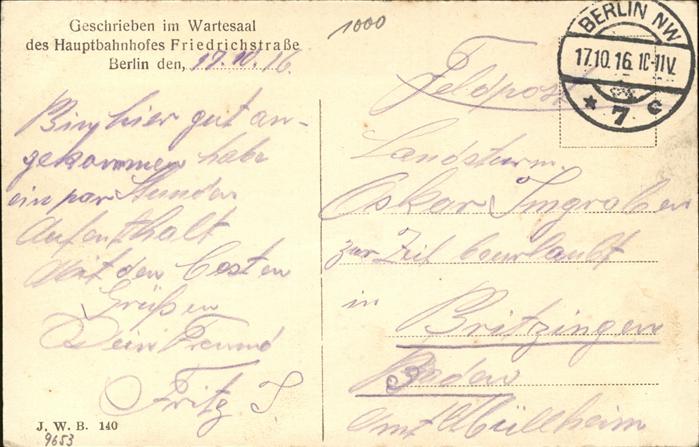 Geschrieben im Wartesaal
des Hauptbahnhofes Friedrichstraße
Berlin den, 17.10.16.
Bin hier gut an-
gekommen habe
ein par Stunden
Aufenthalt
Mit den besten
Grüßen
Dein Freund
Fritz J
J. W. B. 140
9653
1000
BERLIN NW
17.10.16. 10-11V.
* 7 c
Feldpost
Landsturm.
Oskar Imgraben
zur Zeit beurlaubt
in
Britzingen
Baden
Amt Müllheim